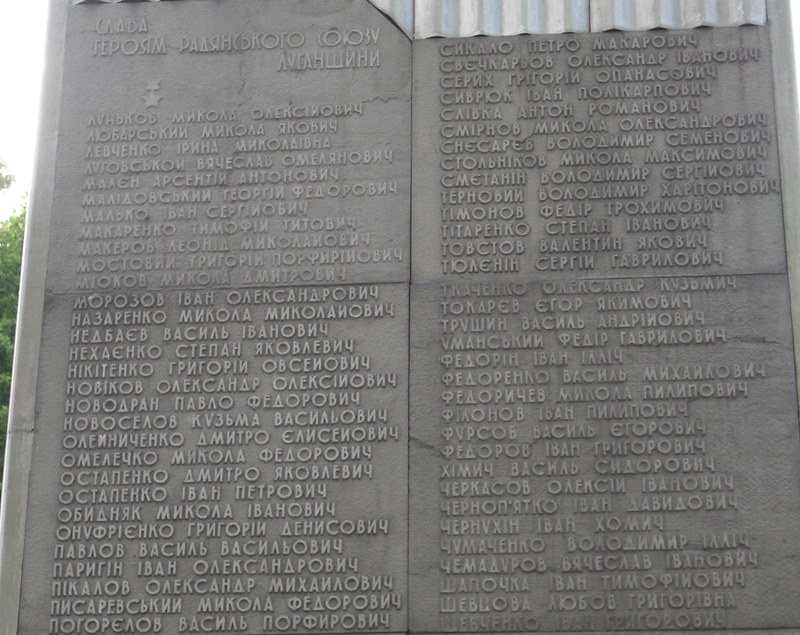 СЛАВА
ГЕРОЯМ РАДЯНСЬКОГО СОЮЗУ
ЛУГАНЩИНИ
ЛУНЬКОВ МИКОЛА ОЛЕКСІЙОВИЧ
ЛЮБАРСЬКИЙ МИКОЛА ЯКОВИЧ
ЛЕВЧЕНКО ІРИНА МИКОЛАЇВНА
ЛУГОВСЬКОЙ ВЯЧЕСЛАВ ОМЕЛЯНОВИЧ
МАЛЄН АРСЕНТІЙ АНТОНОВИЧ
МАЛІДОВСЬКИЙ ГЕОРГІЙ ФЕДОРОВИЧ
МАЛЬКО ІВАН СЕРГІЙОВИЧ
МАКАРЕНКО ТИМОФІЙ ТИТОВИЧ
МАКЕРОВ ЛЕОНІД МИКОЛАЙОВИЧ
МОСТОВИЙ ГРИГОРІЙ ПОРФИРІЙОВИЧ
МІОКОВ МИКОЛА ДМИТРОВИЧ
МОРОЗОВ ІВАН ОЛЕКСАНДРОВИЧ
НАЗАРЕНКО МИКОЛА МИКОЛАЙОВИЧ
НЕДБАЄВ ВАСИЛЬ ІВАНОВИЧ
НЕХАЄНКО СТЕПАН ЯКОВЛЕВИЧ
НІКІТЕНКО ГРИГОРІЙ ОВСЕЙОВИЧ
НОВІКОВ ОЛЕКСАНДР ОЛЕКСІЙОВИЧ
НОВОДРАН ПАВЛО ФЕДОРОВИЧ
НОВОСЕЛОВ КУЗЬМА ВАСИЛЬОВИЧ
ОЛЕЙНИЧЕНКО ДМИТРО ЄЛИСЕЙОВИЧ
ОМЕЛЕЧКО МИКОЛА ФЕДОРОВИЧ
ОСТАПЕНКО ДМИТРО ЯКОВЛЕВИЧ
ОСТАПЕНКО ІВАН ПЕТРОВИЧ
ОБИДНЯК МИКОЛА ІВАНОВИЧ
ОНУФРІЄНКО ГРИГОРІЙ ДЕНИСОВИЧ
ПАВЛОВ ВАСИЛЬ ВАСИЛЬОВИЧ
ПАРИГІН ІВАН ОЛЕКСАНДРОВИЧ
ПІКАЛОВ ОЛЕКСАНДР МИХАЙЛОВИЧ
ПИСАРЕВСЬКИЙ МИКОЛА ФЕДОРОВИЧ
ПОГОРЄЛОВ ВАСИЛЬ ПОРФИРОВИЧ
СИКАЛО ПЕТРО МАКАРОВИЧ
СВЄЧКАРЬОВ ОЛЕКСАНДР ІВАНОВИЧ
СЕРИХ ГРІГОРІЙ ОПАНАСОВИЧ
СИВРЮК ІВАН ПОЛІКАРПОВИЧ
СЛІВКА АНТОН РОМАНОВИЧ
СМІРНОВ МИКОЛА ОЛЕКСАНДРОВИЧ
СНЄСАРЄВ ВОЛОДИМИР СЕМЕНОВИЧ
СТОЛЬНІКОВ МИКОЛА МАКСИМОВИЧ
СМЄТАНІН ВОЛОДИМИР СЕРГІЙОВИЧ
ТЕРНОВИЙ ВОЛОДИМИР ХАРІТОНОВИЧ
ТІМОНОВ ФЕДІР ТРОХИМОВИЧ
ТІТАРЕНКО СТЕПАН ІВАНОВИЧ
ТОВСТОВ ВАЛЕНТИН ЯКОВИЧ
ТЮЛЄНІН СЕРГІЙ ГАВРИЛОВИЧ
ТКАЧЕНКО ОЛЕКСАНДР КУЗЬМИЧ
ТОКАРЄВ ЄГОР ЯКИМОВИЧ
ТРУШИН ВАСИЛЬ АНДРІЙОВИЧ
УМАНСЬКИЙ ФЕДІР ГАВРИЛОВИЧ
ФЕДОРІН ІВАН ІЛЛІЧ
ФЕДОРЕНКО ВАСИЛЬ МИХАЙЛОВИЧ
ФЕДОРИЧЕВ МИКОЛА ПИЛИПОВИЧ
ФІЛОНОВ ІВАН ПИЛИПОВИЧ
ФУРСОВ ВАСИЛЬ ЄГОРОВИЧ
ФЕДОРОВ ІВАН ГРИГОРОВИЧ
ХІМИЧ ВАСИЛЬ СИДОРОВИЧ
ЧЕРКАСОВ ОЛЕКСІЙ ІВАНОВИЧ
ЧЕРНОП'ЯТКО ІВАН ДАВИДОВИЧ
ЧЕРНУХІН ІВАН ХОМИЧ
ЧУМАЧЕНКО ВОЛОДИМИР ІЛЛІЧ
ЧЕМАДУРОВ ВЯЧЕСЛАВ ІВАНОВИЧ
ШАПОЧКА ІВАН ТИМОФІЙОВИЧ
ШЕВЦОВА ЛЮБОВ ГРИГОРІВНА
ШЕВЧЕНКО ІВАН ГРИГОРОВИЧ